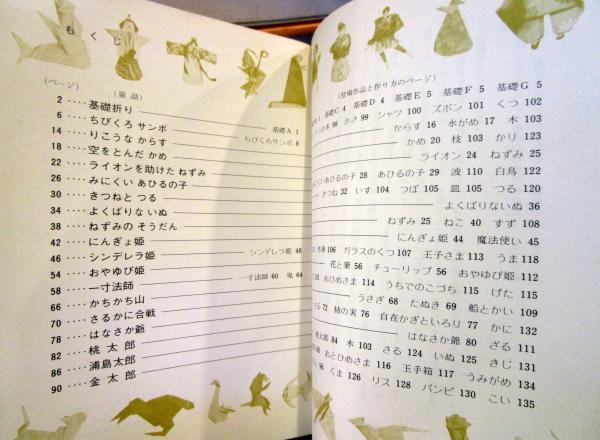 もくじ
(ページ) (童話)
2 ‥‥基礎折り 基礎A 1
6 ‥‥ちびくろ サンボ ちびくろサンボ 8
14 ‥‥りこうな からす
18 ‥‥空をとんだ かめ
22 ‥‥ライオンを助けた ねずみ
26 ‥‥みにくい あひるの子
30 ‥‥きつねと つる
34 ‥‥よくばりな いぬ
38 ‥‥ねずみの そうだん
42 ‥‥にんぎょ姫
46 ‥‥シンデレラ姫 シンデレラ姫 48
54 ‥‥おやゆび姫
58 ‥‥一寸法師 一寸法師 60 鬼 64
66 ‥‥かちかち山
70 ‥‥さるかに合戦
78 ‥‥はなさか爺
82 ‥‥桃 太 郎
86 ‥‥浦島太郎
90 ‥‥金 太 郎
(登場作品と作り方のページ)
基礎C 4 基礎D 4 基礎E 5 基礎F 5 基礎G 5
木 96 かさ 99 シャツ 100 ズボン 101 くつ 102
からす 16 水がめ 17 木 103
かめ 20 枝 103 かり 123
ライオン 24 ねずみ 25
あひるの子 28 あひるの子 29 波 110 白鳥 122
きつね 32 いす 104 つぼ 105 皿 105 つる 120
よくばりないぬ 36
ねずみ 25 ねこ 40 すず 108
にんぎょ姫 44 魔法使い 45
106 ガラスのくつ 107 王子さま 113 うま 118
花と葉 56 チューリップ 56 おやゆび姫 112
おひめさま 114 うちでのこづち 115 げた 115
うさぎ 66 たぬき 69 船とかい 109
72 柿の実 76 自在かぎといろり 77 かに 132
はなさか爺 80 ざる 111
桃太郎 84 木 103 さる 124 いぬ 125 きじ 131
おとひめさま 116 玉手箱 117 うみがめ 134
96 くま 126 リス 128 バンビ 130 こい 135